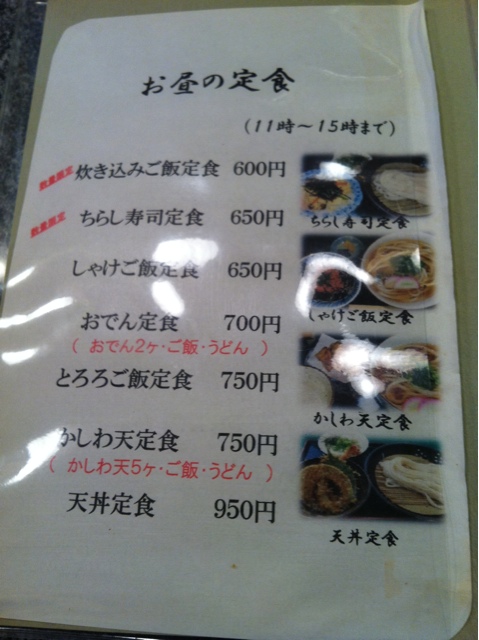 お昼の定食
(11時～15時まで)
数量限定 炊き込みご飯定食 600円
数量限定 ちらし寿司定食 650円
しゃけご飯定食 650円
おでん定食 700円
( おでん2ケ・ご飯・うどん )
とろろご飯定食 750円
かしわ天定食 750円
( かしわ天5ケ・ご飯・うどん )
天丼定食 950円
ちらし寿司定食
しゃけご飯定食
かしわ天定食
天丼定食